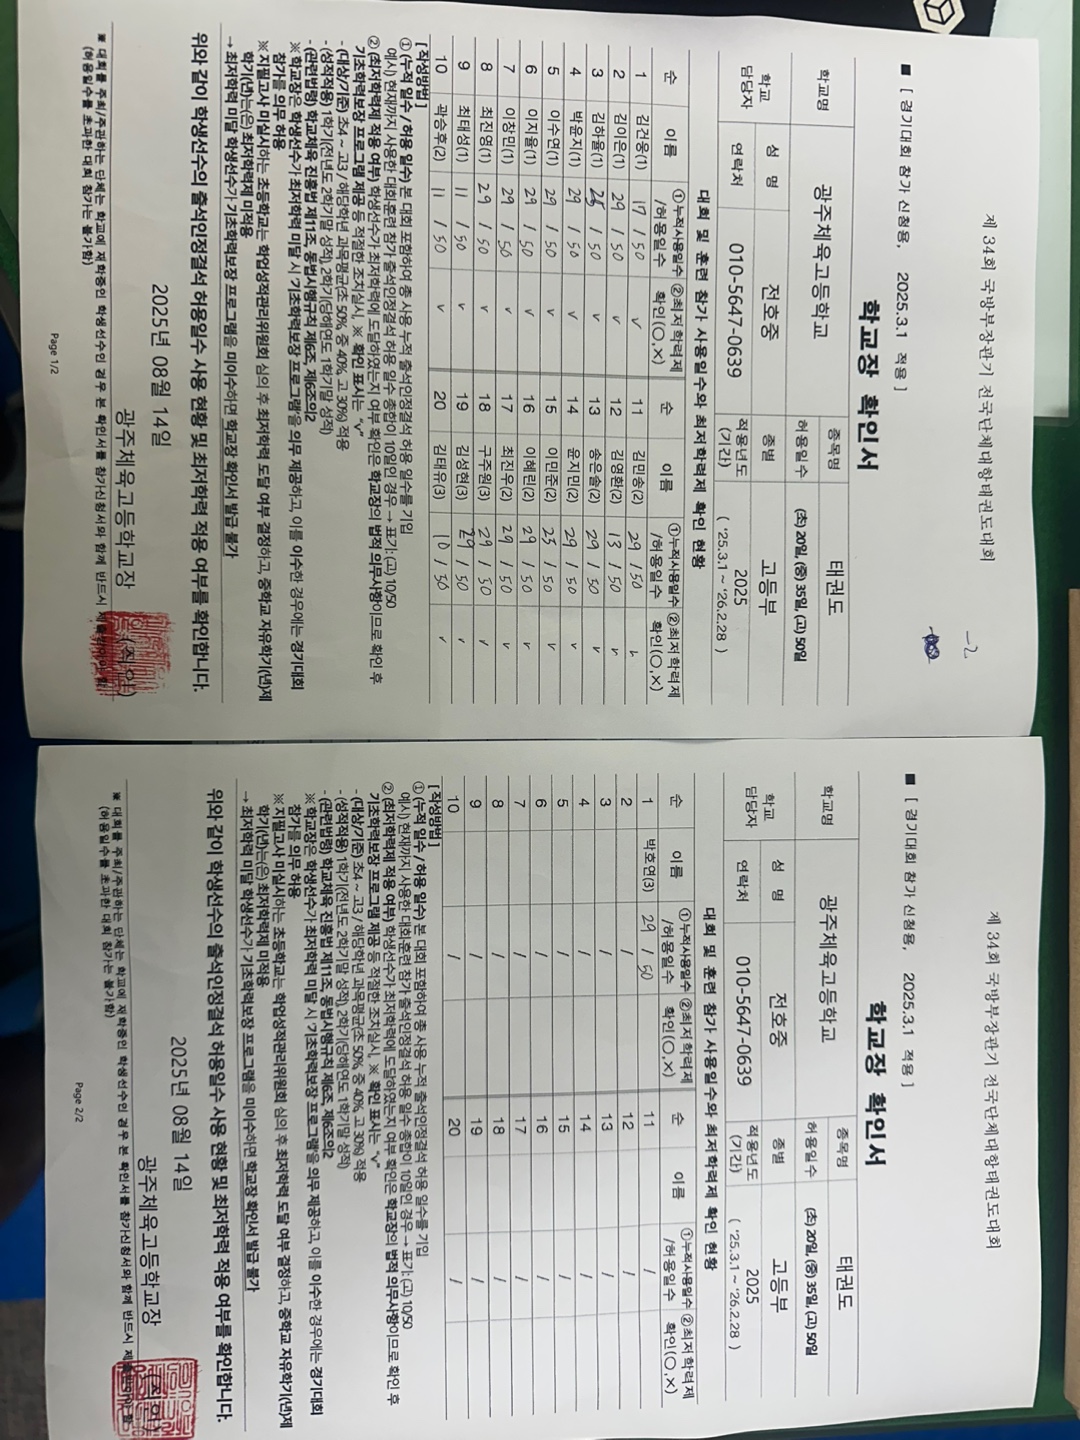 제 34회 국방부장관기 전국단체대항태권도대회
-2
■ [ 경기대회 참가 신청용, 2025.3.1 적용 ]
학교장 확인서
학교명 광주체육고등학교 종목명 태권도
학교 담당자 성 명 전호중 허용일수 (초) 20일, (중) 35일, (고) 50일
종별 고등부
연락처 010-5647-0639 적용년도 (기간) 2025 ( '25.3.1 ~ '26.2.28 )
대회 및 훈련 참가 사용일수와 최저학력제 확인 현황
순 이름 ①누적사용일수 /허용일수 ②최저학력제 확인(○,×) 순 이름 ①누적사용일수 /허용일수 ②최저학력제 확인(○,×)
1 김건웅(1) 17 / 50 v 11 김민송(2) 29 / 50 v
2 김이은(1) 29 / 50 v 12 김영환(2) 13 / 50 v
3 김하율(1) / 50 v 13 송은솔(2) 29 / 50 v
4 박윤지(1) 29 / 50 v 14 윤지민(2) 29 / 50 v
5 이수연(1) 29 / 50 v 15 이민준(2) 25 / 50 v
6 이지율(1) 29 / 50 v 16 이혜린(2) 29 / 50 v
7 이창민(1) 29 / 50 v 17 최진우(2) 29 / 50 v
8 최진영(1) 29 / 50 v 18 구주원(3) 29 / 50 v
9 최태성(1) 11 / 50 v 19 김성현(3) 29 / 50 v
10 곽승후(2) 11 / 50 v 20 김태유(3) 10 / 50 v
[작성방법]
① (누적 일수 / 허용 일수) 본 대회 포함하여 총 사용 누적 출석인정결석 허용 일수를 기입
예시) 현재까지 사용한 대회훈련 참가 출석인정결석 허용 일수 총합이 10일인 경우 → 표기: (고) 10/50
② (최저학력제 적용 여부) 학생선수가 최저학력에 도달하였는지 여부 확인은 학교장의 법적 의무사항이므로 확인 후
기초학력보장 프로그램 제공 등 적절한 조치실시, ※ 확인 표시는 "v"
- (대상/기준) 초4 ~ 고3 / 해당학년 과목평균(초 50%, 중 40%, 고 30%) 적용
- (성적적용) 1학기(전년도 2학기말 성적), 2학기(당해연도 1학기말 성적)
- (관련법령) 학교체육 진흥법 제11조, 동법시행규칙 제6조, 제6조의2
※ 학교장은 학생선수가 최저학력 미달 시 '기초학력보장 프로그램'을 의무 제공하고, 이를 이수한 경우에는 경기대회
참가를 의무 허용
※ 지필고사 미실시하는 초등학교는 학업성적관리위원회 심의 후 최저학력 도달 여부 결정하고, 중학교 자유학기(년)제
학기(년)는(은) 최저학력제 미적용
→ 최저학력 미달 학생선수가 기초학력보장 프로그램을 미이수하면 학교장 확인서 발급 불가
위와 같이 학생선수의 출석인정결석 허용일수 사용 현황 및 최저학력 적용 여부를 확인합니다.
2025년 08월 14일
광주체육고등학교장 (직인)
※ 대회를 주최/주관하는 단체는 학교에 재학중인 학생선수인 경우 본 확인서를 참가신청서와 함께 반드시 제출받아야 함
(허용일수를 초과한 대회 참가는 불가함)
Page 1/2
제 34회 국방부장관기 전국단체대항태권도대회
■ [ 경기대회 참가 신청용, 2025.3.1 적용 ]
학교장 확인서
학교명 광주체육고등학교 종목명 태권도
학교 담당자 성 명 전호중 허용일수 (초) 20일, (중) 35일, (고) 50일
종별 고등부
연락처 010-5647-0639 적용년도 (기간) 2025 ( '25.3.1 ~ '26.2.28 )
대회 및 훈련 참가 사용일수와 최저학력제 확인 현황
순 이름 ①누적사용일수 /허용일수 ②최저학력제 확인(○,×) 순 이름 ①누적사용일수 /허용일수 ②최저학력제 확인(○,×)
1 박호연(3) 29 / 50 11 /
2 / 12 /
3 / 13 /
4 / 14 /
5 / 15 /
6 / 16 /
7 / 17 /
8 / 18 /
9 / 19 /
10 / 20 /
[작성방법]
① (누적 일수 / 허용 일수) 본 대회 포함하여 총 사용 누적 출석인정결석 허용 일수를 기입
예시) 현재까지 사용한 대회훈련 참가 출석인정결석 허용 일수 총합이 10일인 경우 → 표기: (고) 10/50
② (최저학력제 적용 여부) 학생선수가 최저학력에 도달하였는지 여부 확인은 학교장의 법적 의무사항이므로 확인 후
기초학력보장 프로그램 제공 등 적절한 조치실시, ※ 확인 표시는 "v"
- (대상/기준) 초4 ~ 고3 / 해당학년 과목평균(초 50%, 중 40%, 고 30%) 적용
- (성적적용) 1학기(전년도 2학기말 성적), 2학기(당해연도 1학기말 성적)
- (관련법령) 학교체육 진흥법 제11조, 동법시행규칙 제6조, 제6조의2
※ 학교장은 학생선수가 최저학력 미달 시 '기초학력보장 프로그램'을 의무 제공하고, 이를 이수한 경우에는 경기대회
참가를 의무 허용
※ 지필고사 미실시하는 초등학교는 학업성적관리위원회 심의 후 최저학력 도달 여부 결정하고, 중학교 자유학기(년)제
학기(년)는(은) 최저학력제 미적용
→ 최저학력 미달 학생선수가 기초학력보장 프로그램을 미이수하면 학교장 확인서 발급 불가
위와 같이 학생선수의 출석인정결석 허용일수 사용 현황 및 최저학력 적용 여부를 확인합니다.
2025년 08월 14일
광주체육고등학교장 (직인)
※ 대회를 주최/주관하는 단체는 학교에 재학중인 학생선수인 경우 본 확인서를 참가신청서와 함께 반드시 제출받아야 함
(허용일수를 초과한 대회 참가는 불가함)
Page 2/2